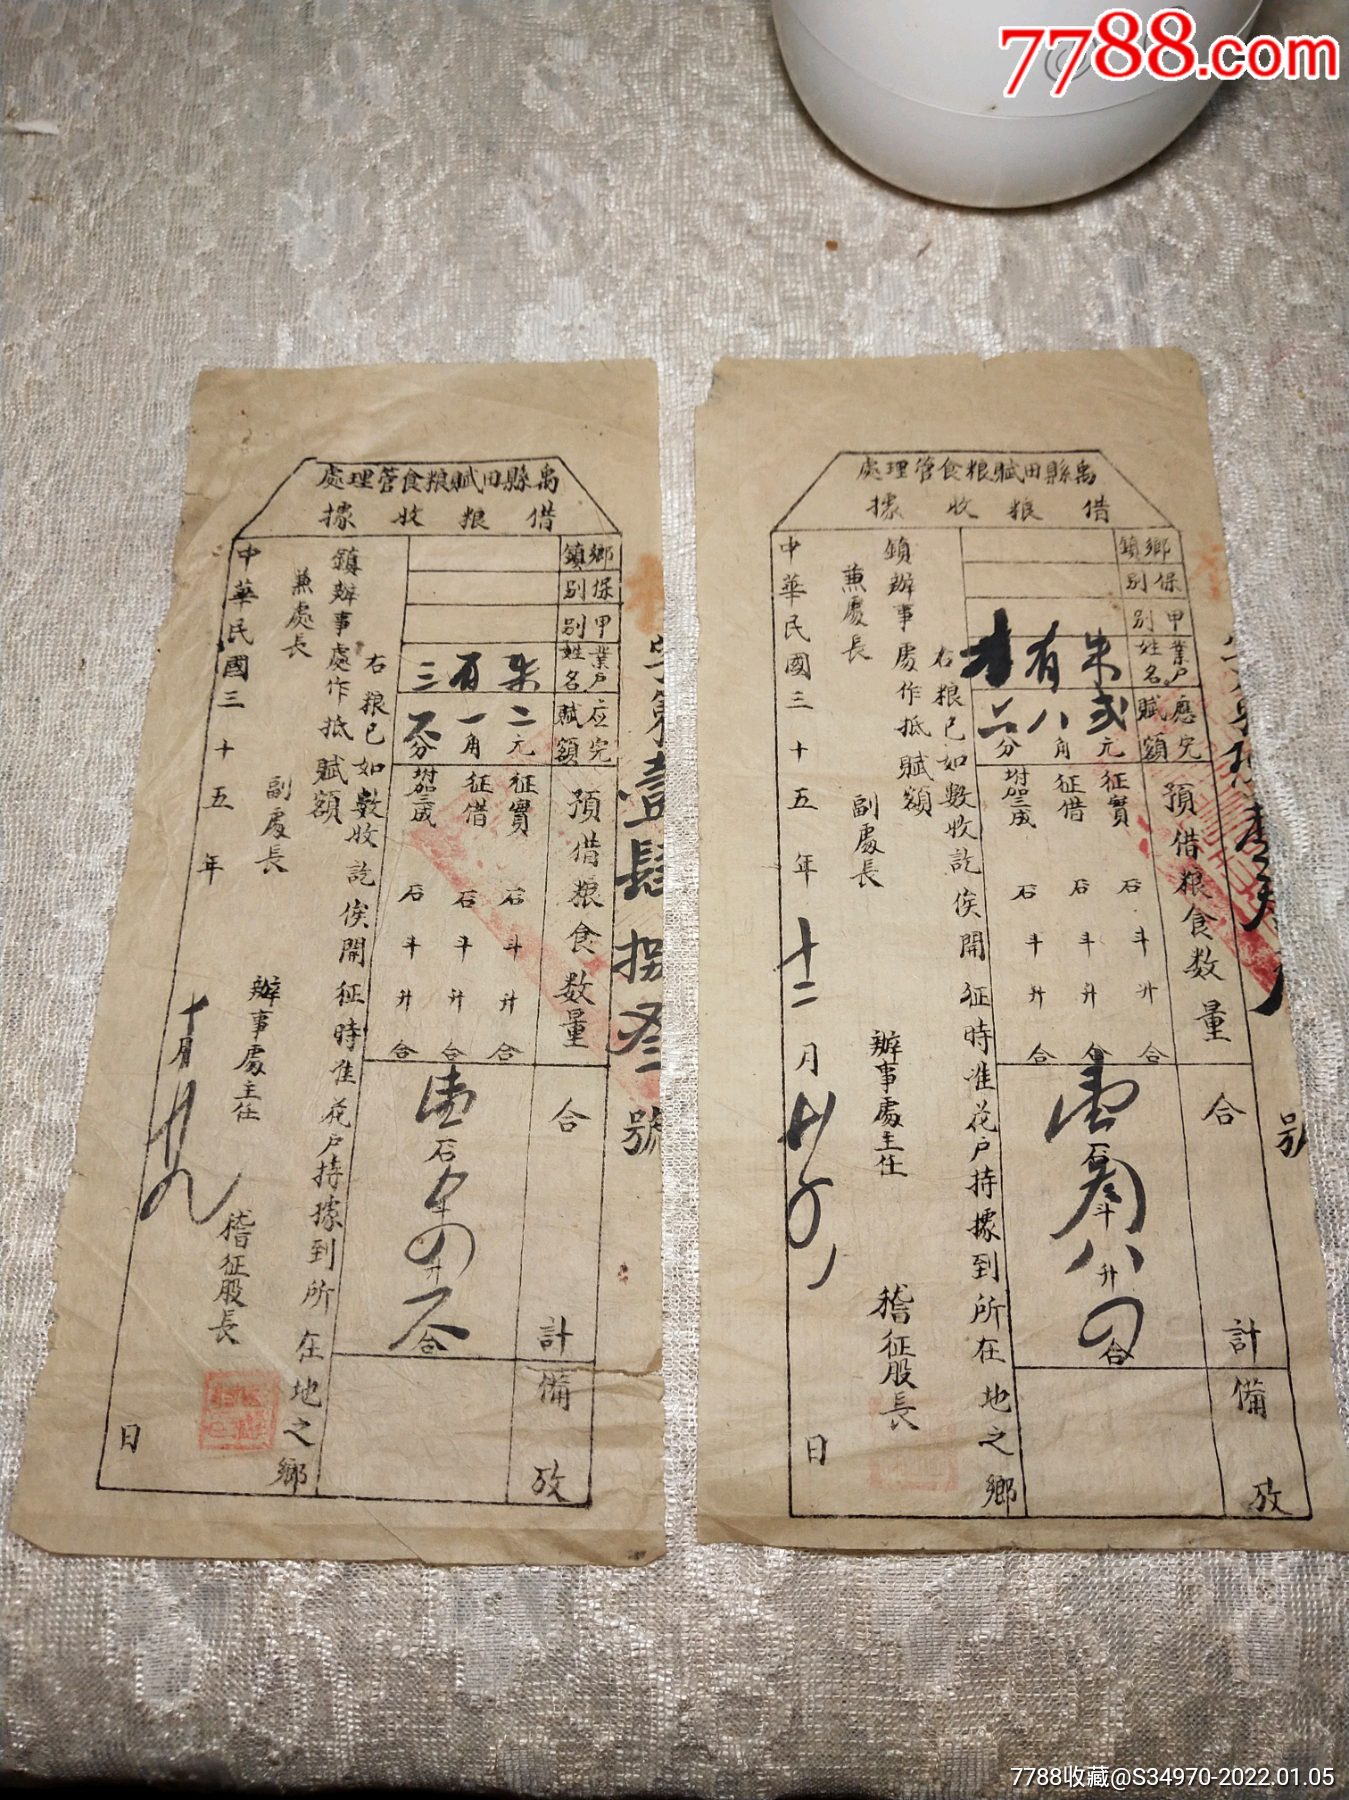 7788.com
禹縣田賦粮食管理處
借粮收據
鄉鎮
保別
甲別
業戶姓名
朱有三
应完賦額
二元一角
分
預借粮食数量
征實 石斗升合
征借 石斗升合
附加三成 石斗升合
合計
壹石
斗
升
合
備攷
右粮已如數收訖俟開征時准花户持據到所在地之鄉
鎮辦事處作抵賦額
兼處長
副處長
辦事處主任
稽征股長
中華民國三十五年
日
壹肆捌叁號
禹縣田賦粮食管理處
借粮收據
鄉鎮
保別
甲別
業戶姓名
朱有才
應完賦額
弍元八角
分
預借粮食数量
征實 石斗升合
征借 石斗升合
附加三成 石斗升合
合計
壹石
斗八升
合
備攷
右粮已如數收訖俟開征時准花户持據到所在地之鄉
鎮辦事處作抵賦額
兼處長
副處長
辦事處主任
稽征股長
中華民國三十五年十二月
日
號
7788收藏@S34970-2022.01.05